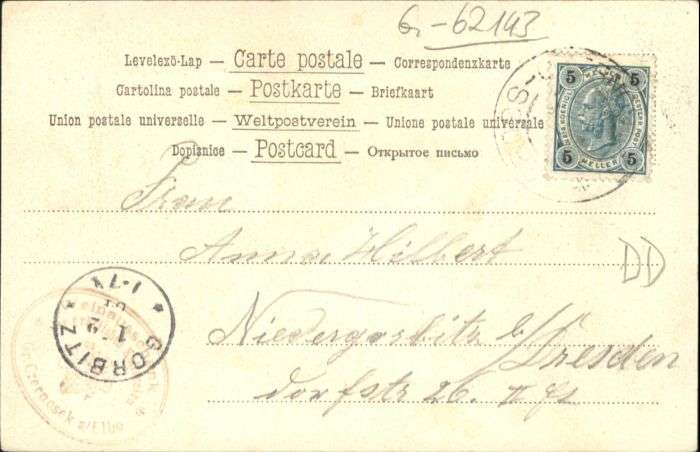 Gr-62143
Levelező-Lap — Carte postale — Correspondenzkarte
Cartolina postale — Postkarte — Briefkaart
Union postale universelle — Weltpostverein — Unione postale universale
Dopisnice — Postcard — Открытое письмо
5 5
5 HELLER 5
Frau
Anna Hilbert
DD
Niedergorbitz b/Dresden
Dorfstr 26. II Fs
GORBITZ
Gr. Czernosek a/Elbe